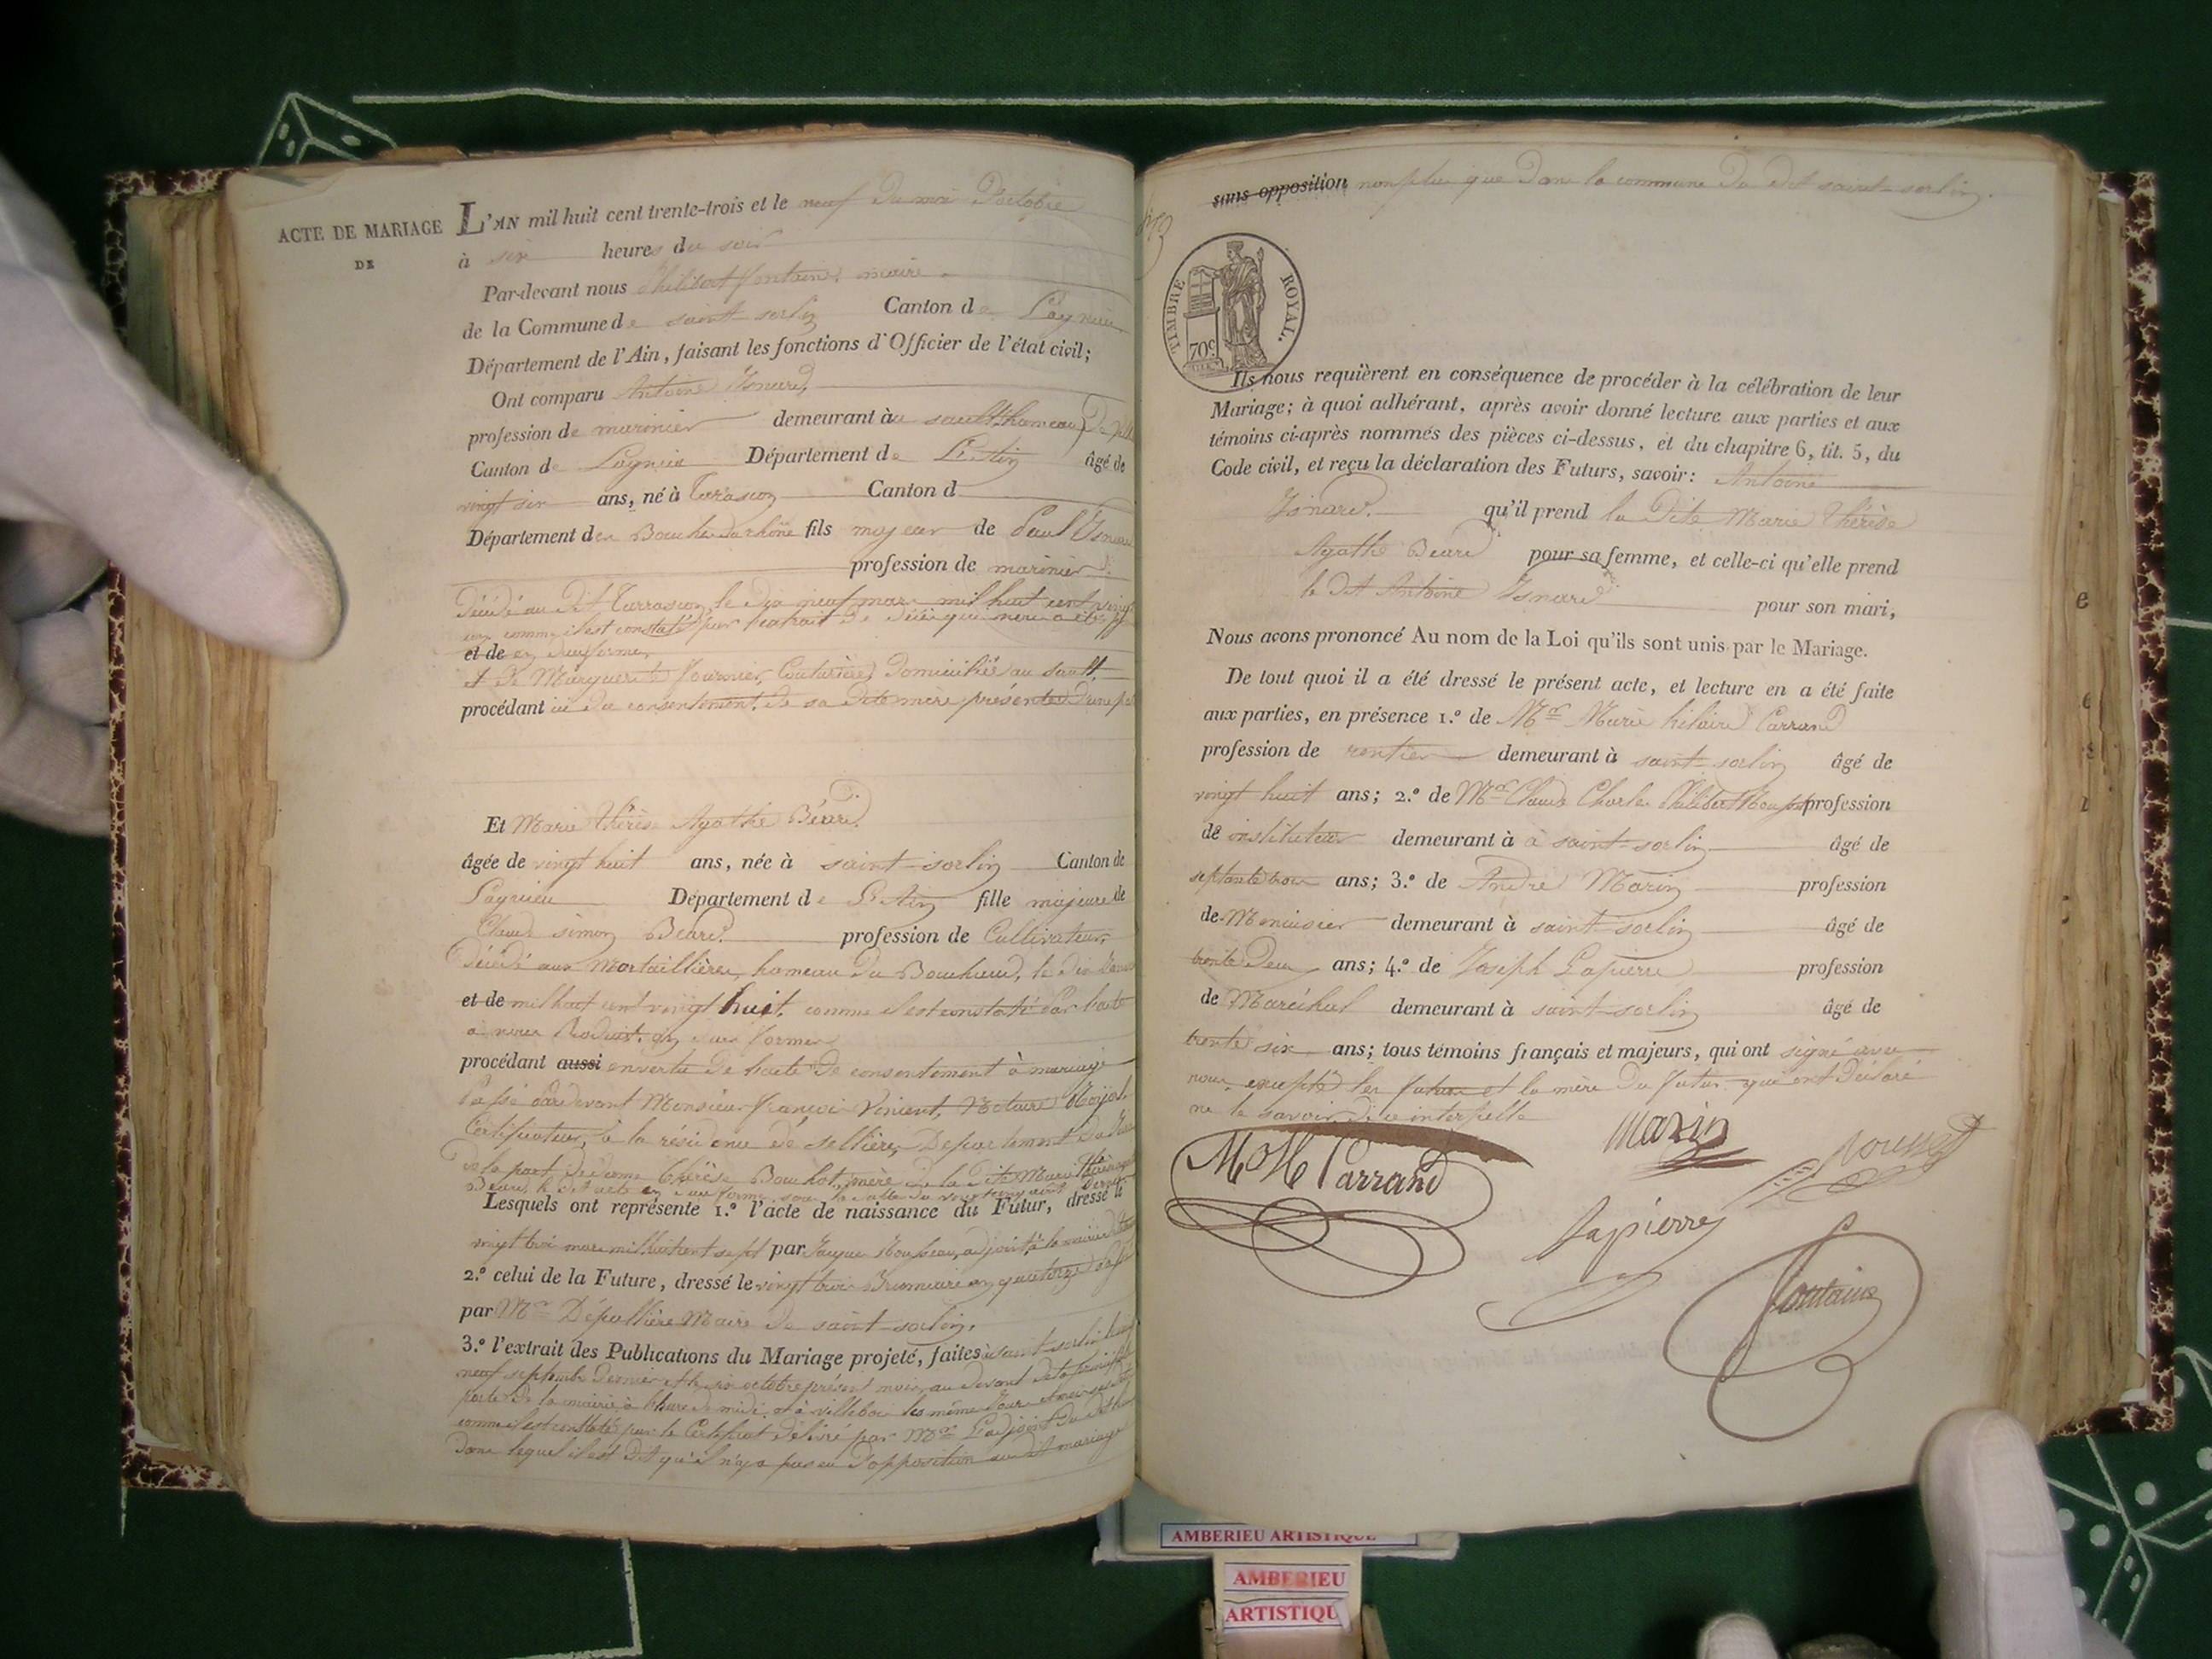 ACTE DE MARIAGE
DE
L'AN mil huit cent trente-trois et le neuf du mois d'octobre
à six heures du soir
Par-devant nous Philibert fontaine maire
de la Commune de saint sorlin Canton de Lagnieu
Département de l'Ain, faisant les fonctions d'Officier de l'état civil;
Ont comparu Antoine Isnard
profession de marinier demeurant au sault hameau de
Canton de Lagnieu Département de L'Ain âgé de
vingt six ans, né à Tarascon Canton d
Département des Bouches du rhône fils majeur de Paul Isnard
profession de marinier
Décédé au dit Tarrascon, le dix neuf mars mil huit cent vingt
comme il est constaté par l'extrait de décès qui nous a été
et de en due forme
& de Marguerite fournier, Couturière, domiciliée au sault
procédant ici du consentement de sa dite mère présente d'une part
Et Marie thérèse Agathe Béard
âgée de vingt huit ans, née à saint-sorlin Canton de
Lagnieu Département de L'Ain fille majeure de
Claude simon Béard profession de Cultivateur,
Décédé aux Mortaillières, hameau du Bouchaud, le dix
et de mil huit cent vingt huit, comme il est constaté par l'acte
a nous Produit en due forme
procédant aussi en vertu de l'acte de consentement à mariage
Passé pardevant Monsieur françois Vincent, Notaire Royal
Certificateur, à la résidence de sellières, Département du Jura
de la part de dame thérèse Bouchot, mère de la dite Marie thérèse
Béard, le dit acte en due forme, sous la date du vingt
Lesquels ont représenté 1.º l'acte de naissance du Futur, dressé le
vingt trois mars mil huit cent sept par Jacques adjoint à la mairie
2.º celui de la Future, dressé le vingt trois Brumaire an quatorze
par Mr Dépallière Maire de saint-sorlin.
3.º l'extrait des Publications du Mariage projeté, faites à saint-sorlin
neuf septembre dernier et le six octobre présent mois, au devant de la principale
porte de la mairie, à l'heure de midi, et à villebois les même Jours
comme il est constaté par le Certificat délivré par Mr L'adjoint du dit
dans lequel il est dit qu'il n'y a pas eu d'opposition au dit mariage
sans opposition non plus que dans la commune du dit saint-sorlin.
TIMBRE ROYAL.
70c
Ils nous requièrent en conséquence de procéder à la célébration de leur
Mariage; à quoi adhérant, après avoir donné lecture aux parties et aux
témoins ci-après nommés des pièces ci-dessus, et du chapitre 6, tit. 5, du
Code civil, et reçu la déclaration des Futurs, savoir: Antoine
Isnard qu'il prend la dite Marie thérèse
Agathe Beard pour sa femme, et celle-ci qu'elle prend
le dit Antoine Isnard pour son mari,
Nous avons prononcé Au nom de la Loi qu'ils sont unis par le Mariage.
De tout quoi il a été dressé le présent acte, et lecture en a été faite
aux parties, en présence 1.º de Mr Marie hilaire Carrand
profession de rentier demeurant à saint-sorlin âgé de
vingt huit ans; 2.º de Mr Claude Charles Philibert profession
de instituteur demeurant à à saint-sorlin âgé de
septante trois ans; 3.º de André Marin profession
de Menuisier demeurant à saint sorlin âgé de
trente deux ans; 4.º de Joseph Lapierre profession
de Maréchal demeurant à saint-sorlin âgé de
trente six ans; tous témoins français et majeurs, qui ont signé avec
nous, excepté les futurs et la mère du futur, qui ont déclaré
ne le savoir de ce interpellé
M H Carrand
Marin
Lapierre
fontaine
AMBERIEU ARTISTIQUE
AMBERIEU
ARTISTIQU